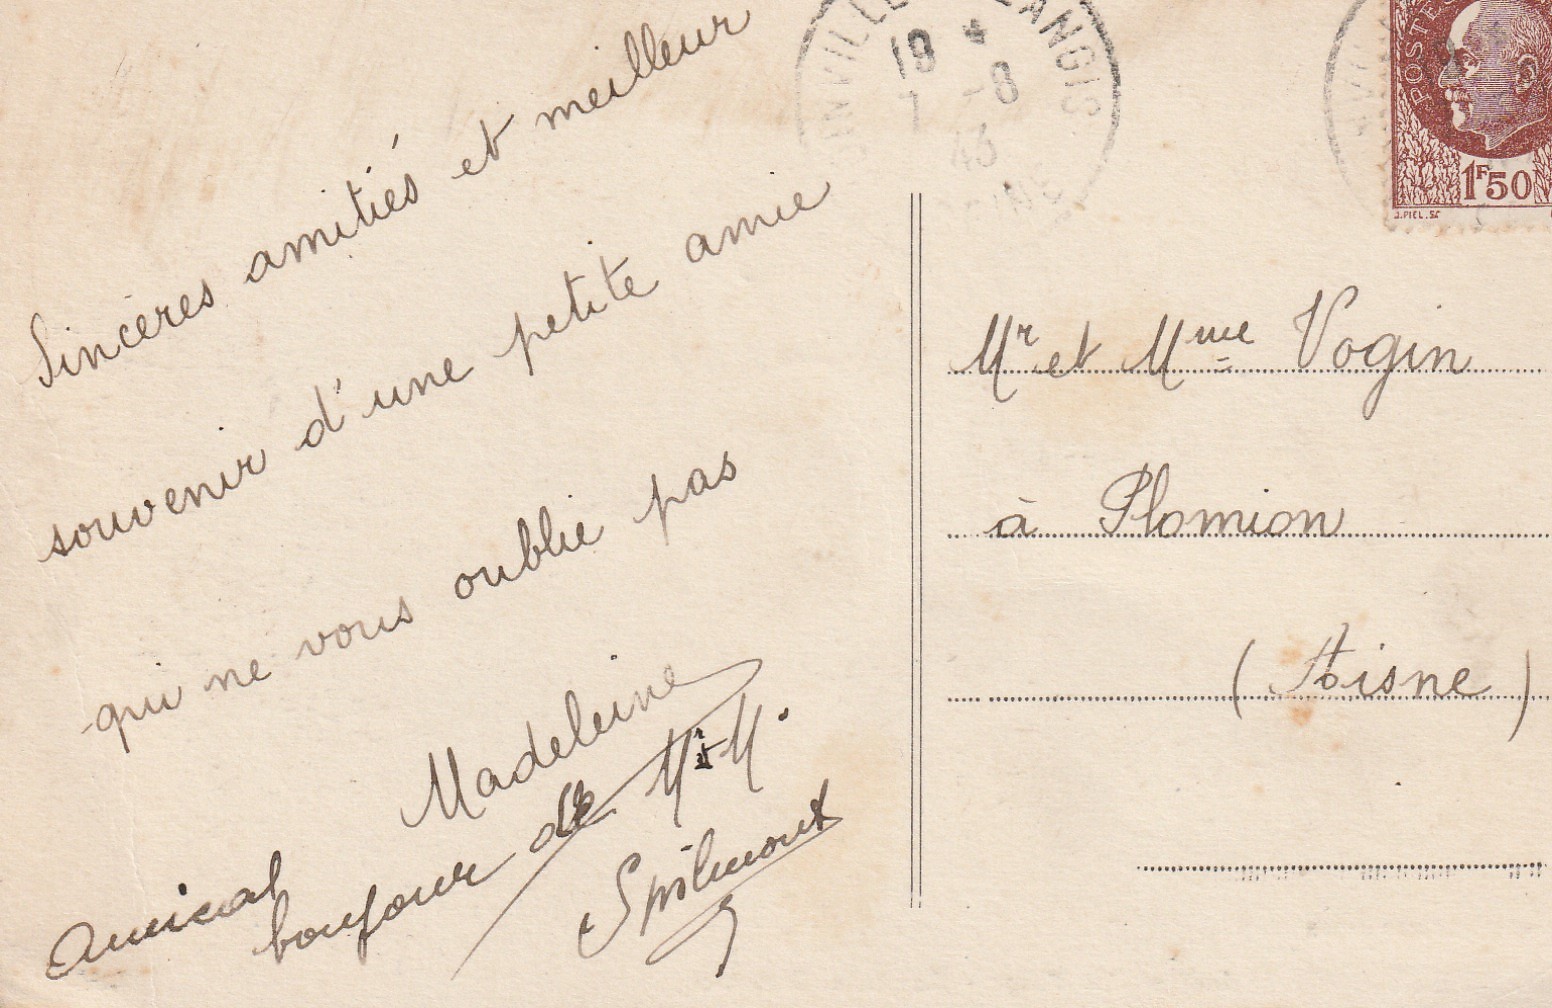 Sincères amitiés et meilleur
souvenir d'une petite amie
qui ne vous oublie pas
Madeleine
amical
bonjour de Mr et M.
Spilmont
19 *
7 -8
43
POSTES
1F50
J.PIEL.SC
Mr et Mme Vogin
à Plomion
(Aisne)